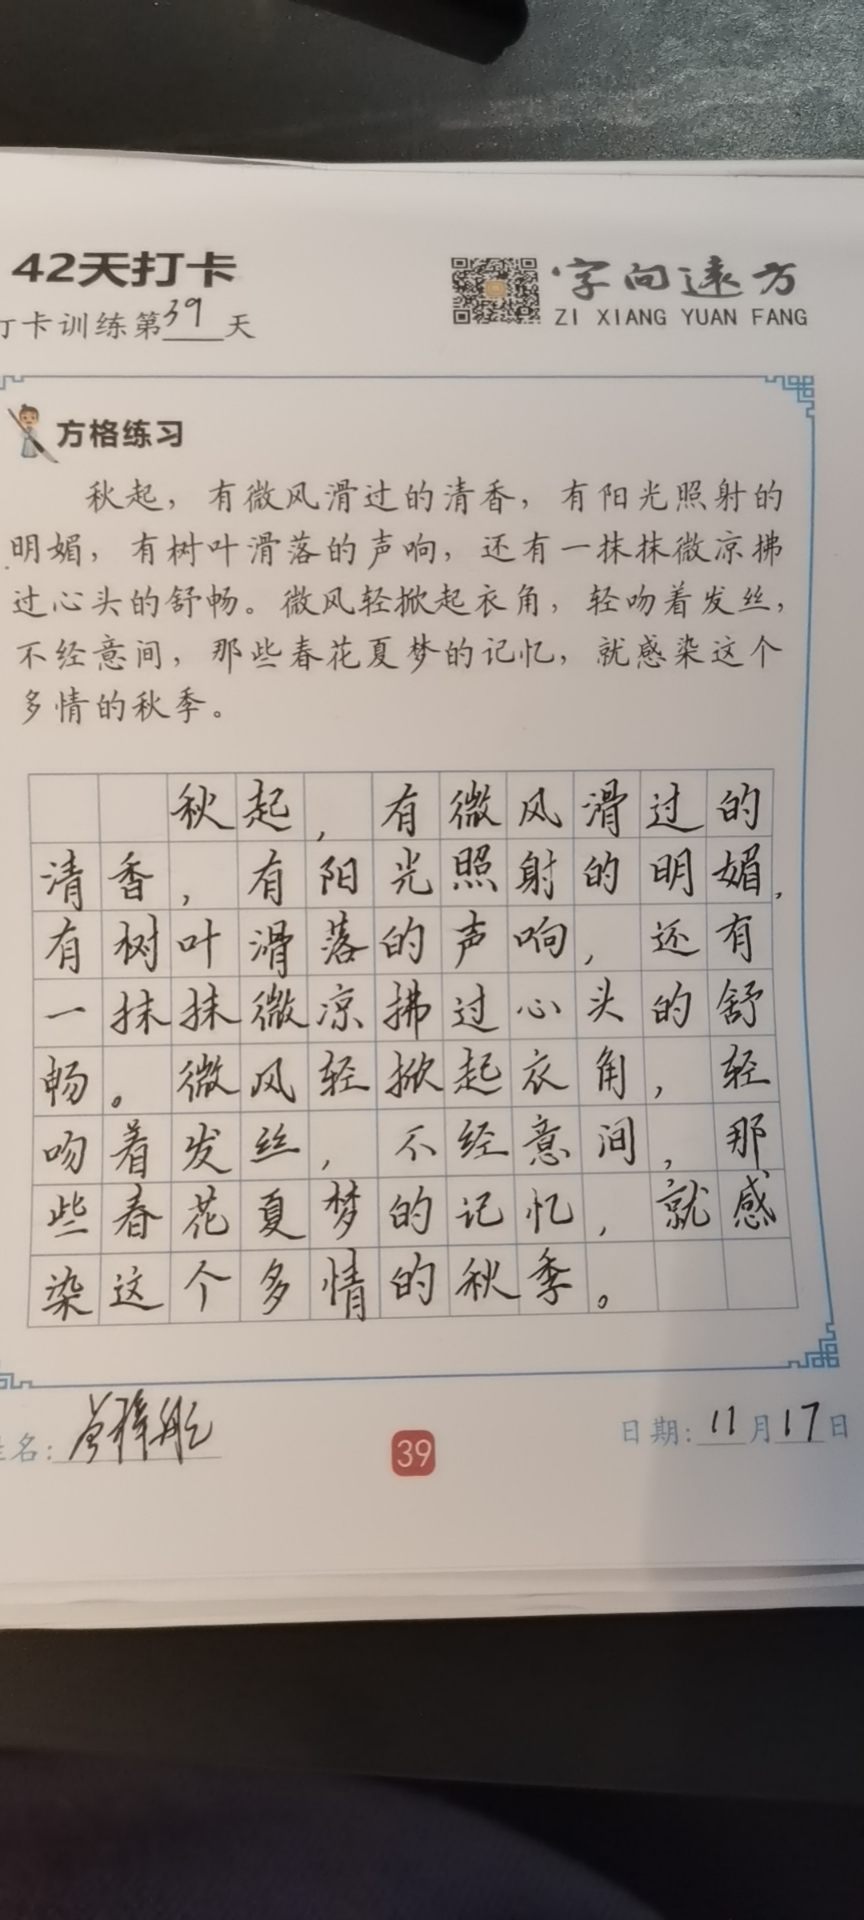 42天打卡
字向远方
打卡训练第39天
ZI XIANG YUAN FANG
方格练习
秋起，有微风滑过的清香，有阳光照射的
明媚，有树叶滑落的声响，还有一抹抹微凉拂
过心头的舒畅。微风轻掀起衣角，轻吻着发丝，
不经意间，那些春花夏梦的记忆，就感染这个
多情的秋季。
秋起，有微风滑过的
清香，有阳光照射的明媚，
有树叶滑落的声响，还有
一抹抹微凉拂过心头的舒
畅。微风轻掀起衣角，轻
吻着发丝，不经意间，那
些春花夏梦的记忆，就感
染这个多情的秋季。
姓名：
39
日期：11月17日